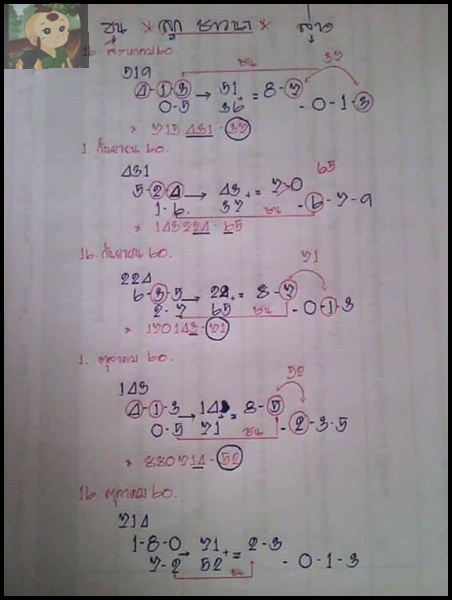 ขุน * ลูก ชาวนา * สูง
16 สิงหาคม 60.
519 ชน 37
4-1-3 → 51 = 8-7
0-5 36 - 0-1-3
* 715431-37
1. กันยายน 60.
431 65
5-2-4 → 43 + = 7>0
1-6. 37 ชน - 6-7-9
* 143224-65
16. กันยายน 60.
224 71
6-3-5 → 22 + = 8-7
2-7 65 ชน - 0-1-3
* 170143-71
1. ตุลาคม 60.
143 52
4-1-3 → 14 = 8-5
0-5 71 ชน - 2-3-5
* 880714-52
16. ตุลาคม 60.
714
1-8-0 → 71 + = 2-3
7-2 52 ชน - 0-1-3